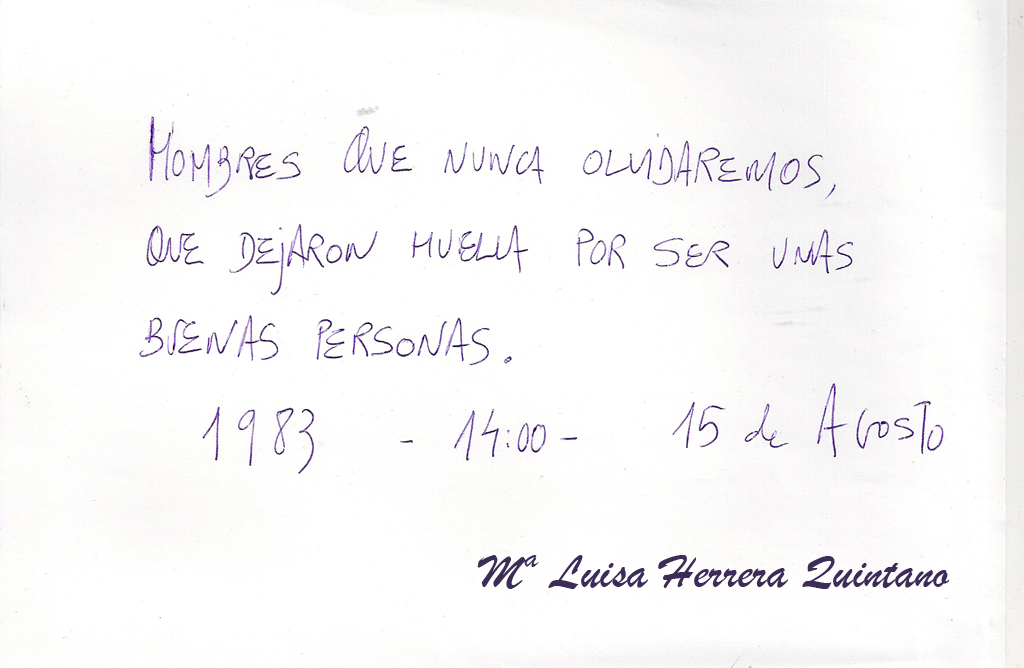 HOMBRES QUE NUNCA OLVIDAREMOS,
QUE DEJARON HUELLA POR SER UNAS
BUENAS PERSONAS.
1983 - 14:00 - 15 de AGOSTO
Mª Luisa Herrera Quintano